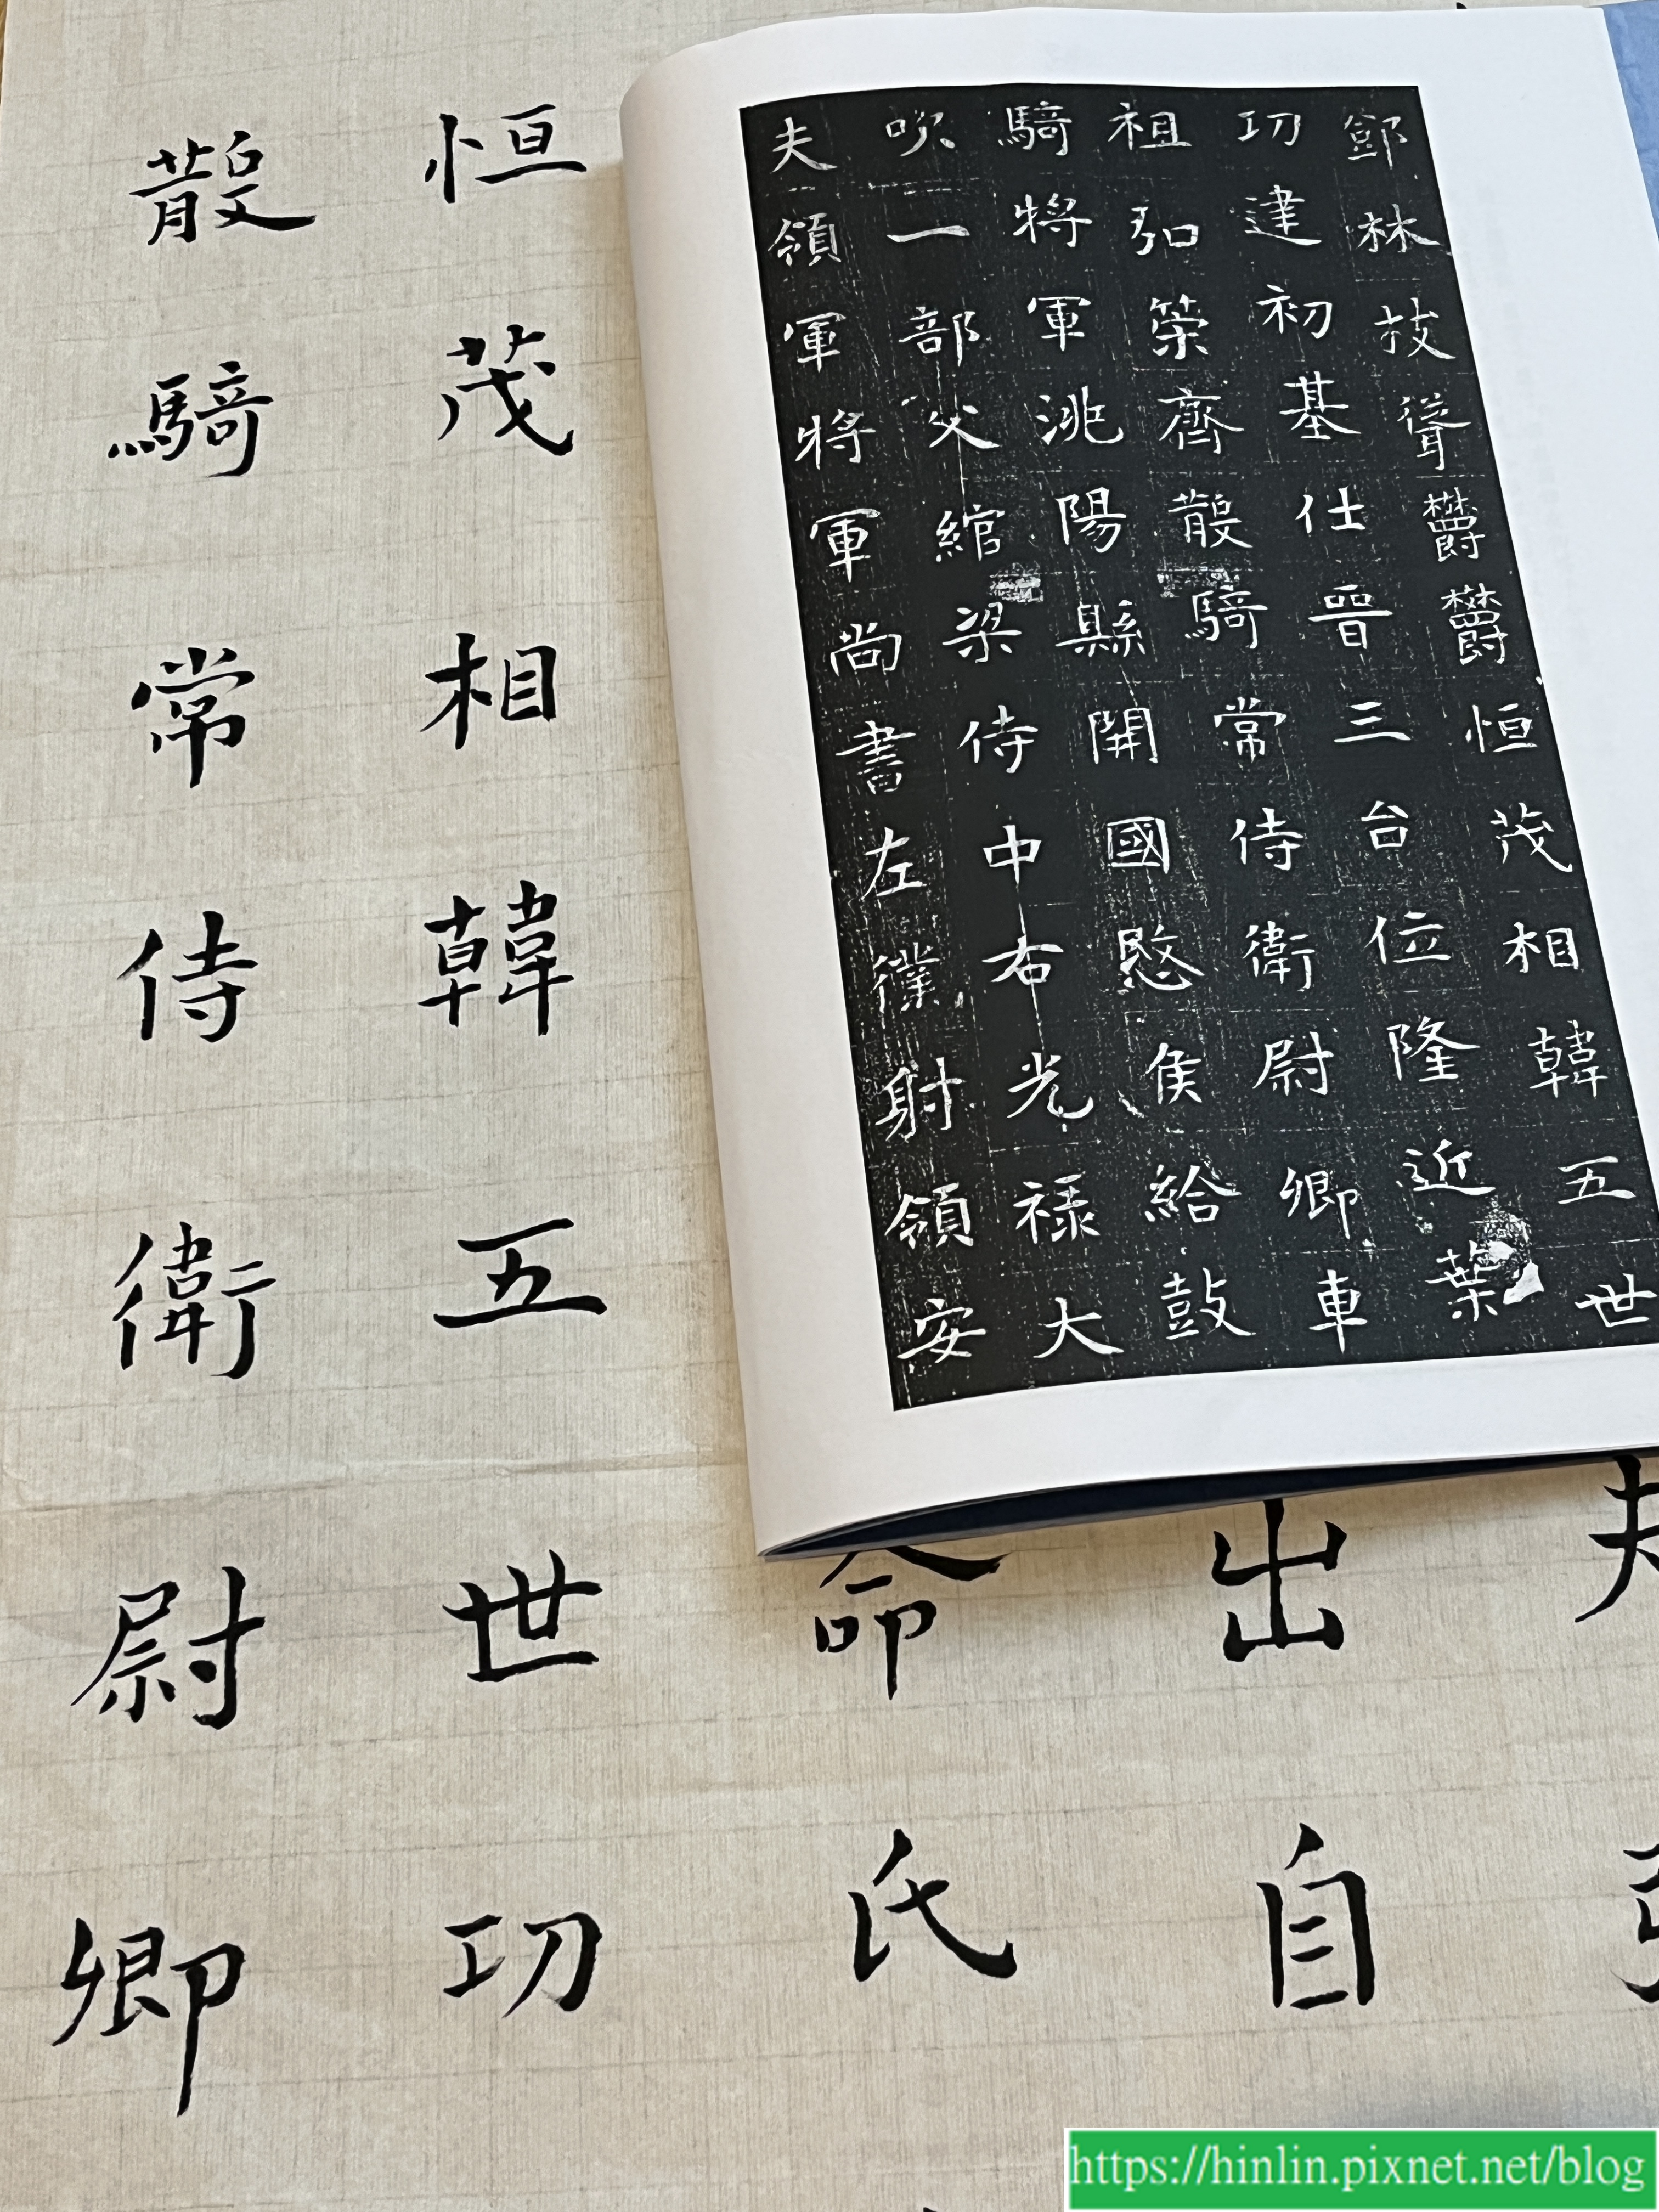 鄧林技聳欝欝恒茂相韓五世
功建初基仕晉三台位隆近葉
祖弘策齊散騎常侍衛尉卿車
騎將軍洮陽縣開國愍侯給鼓
吹一部父綰梁侍中右光祿大
夫領軍將軍尚書左僕射領安
出自
命氏
恒茂相韓五世功
散騎常侍衛尉卿
https://hinlin.pixnet.net/blog